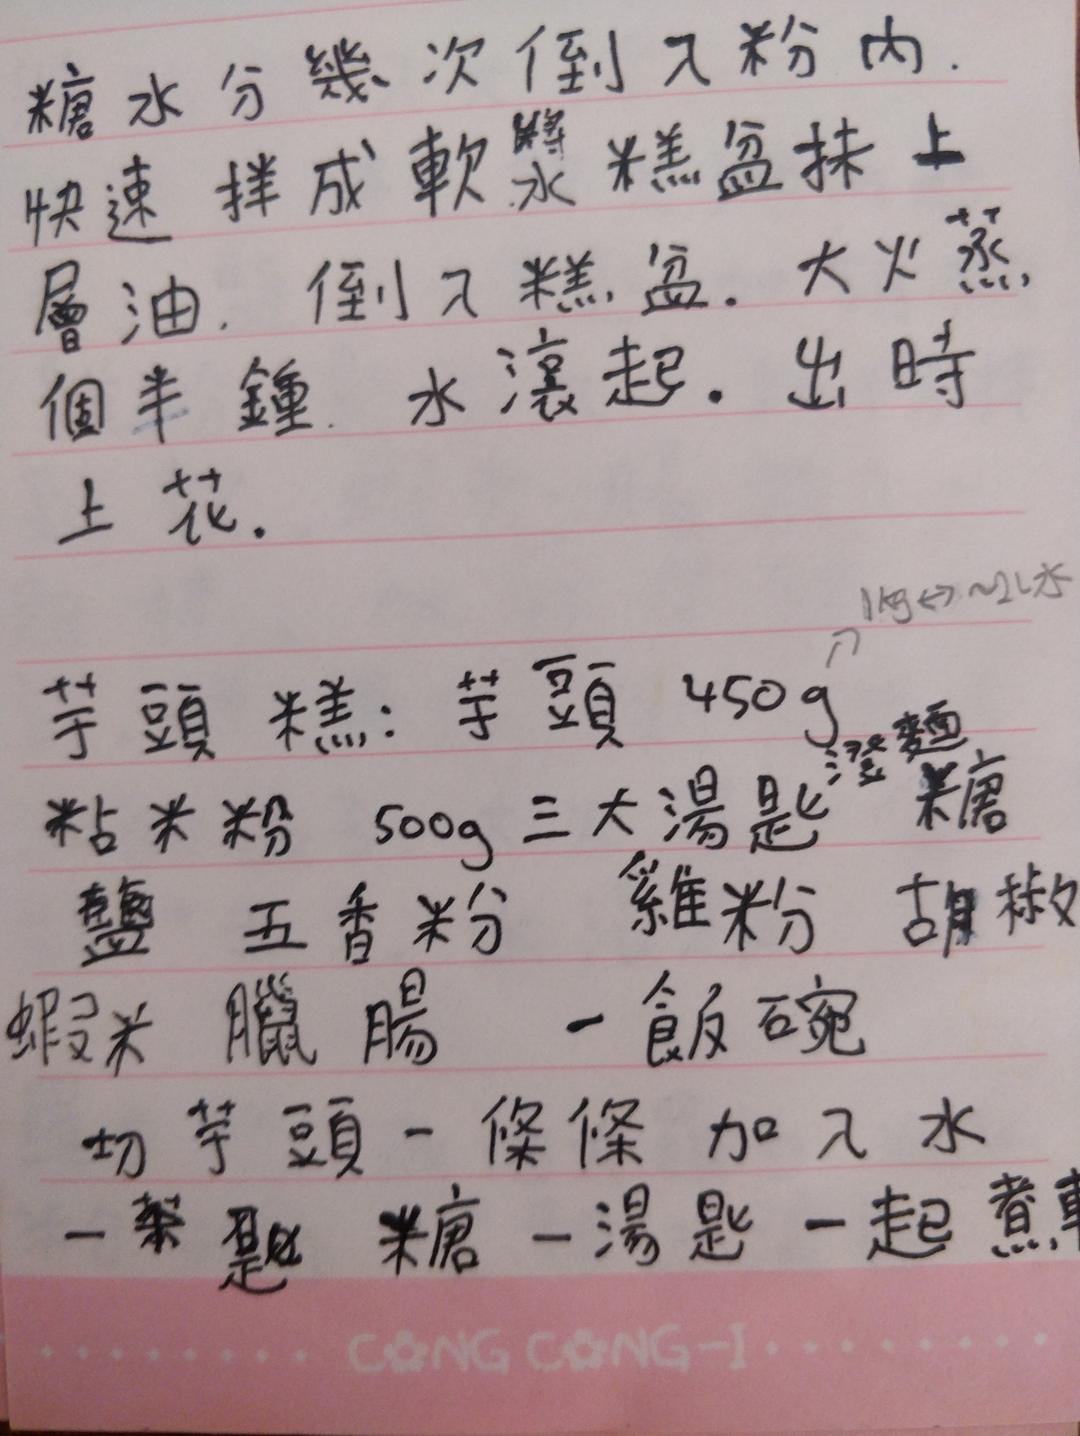 糖水分幾次倒入粉內.
快速拌成軟漿 糕盆抹上
層油. 倒入糕盆. 大火蒸,
個半鐘. 水滾起. 出時
上花.
1kg ↔ ~2L水
芋頭糕: 芋頭 450g
粘米粉 500g 三大湯匙澄麵 糖
鹽 五香粉 雞粉 胡椒
蝦米 臘腸 一飯碗
切芋頭一條條 加入水
一茶匙 糖一湯匙 一起煮
CONG CONG-I